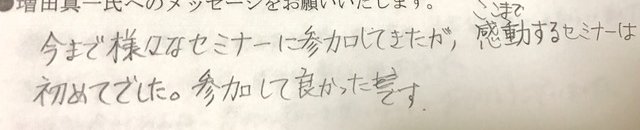 ●増田真一氏へのメッセージをお願いいたします。
ここまで
今まで様々なセミナーに参加してきたが、感動するセミナーは
初めてでした。参加して良かったです